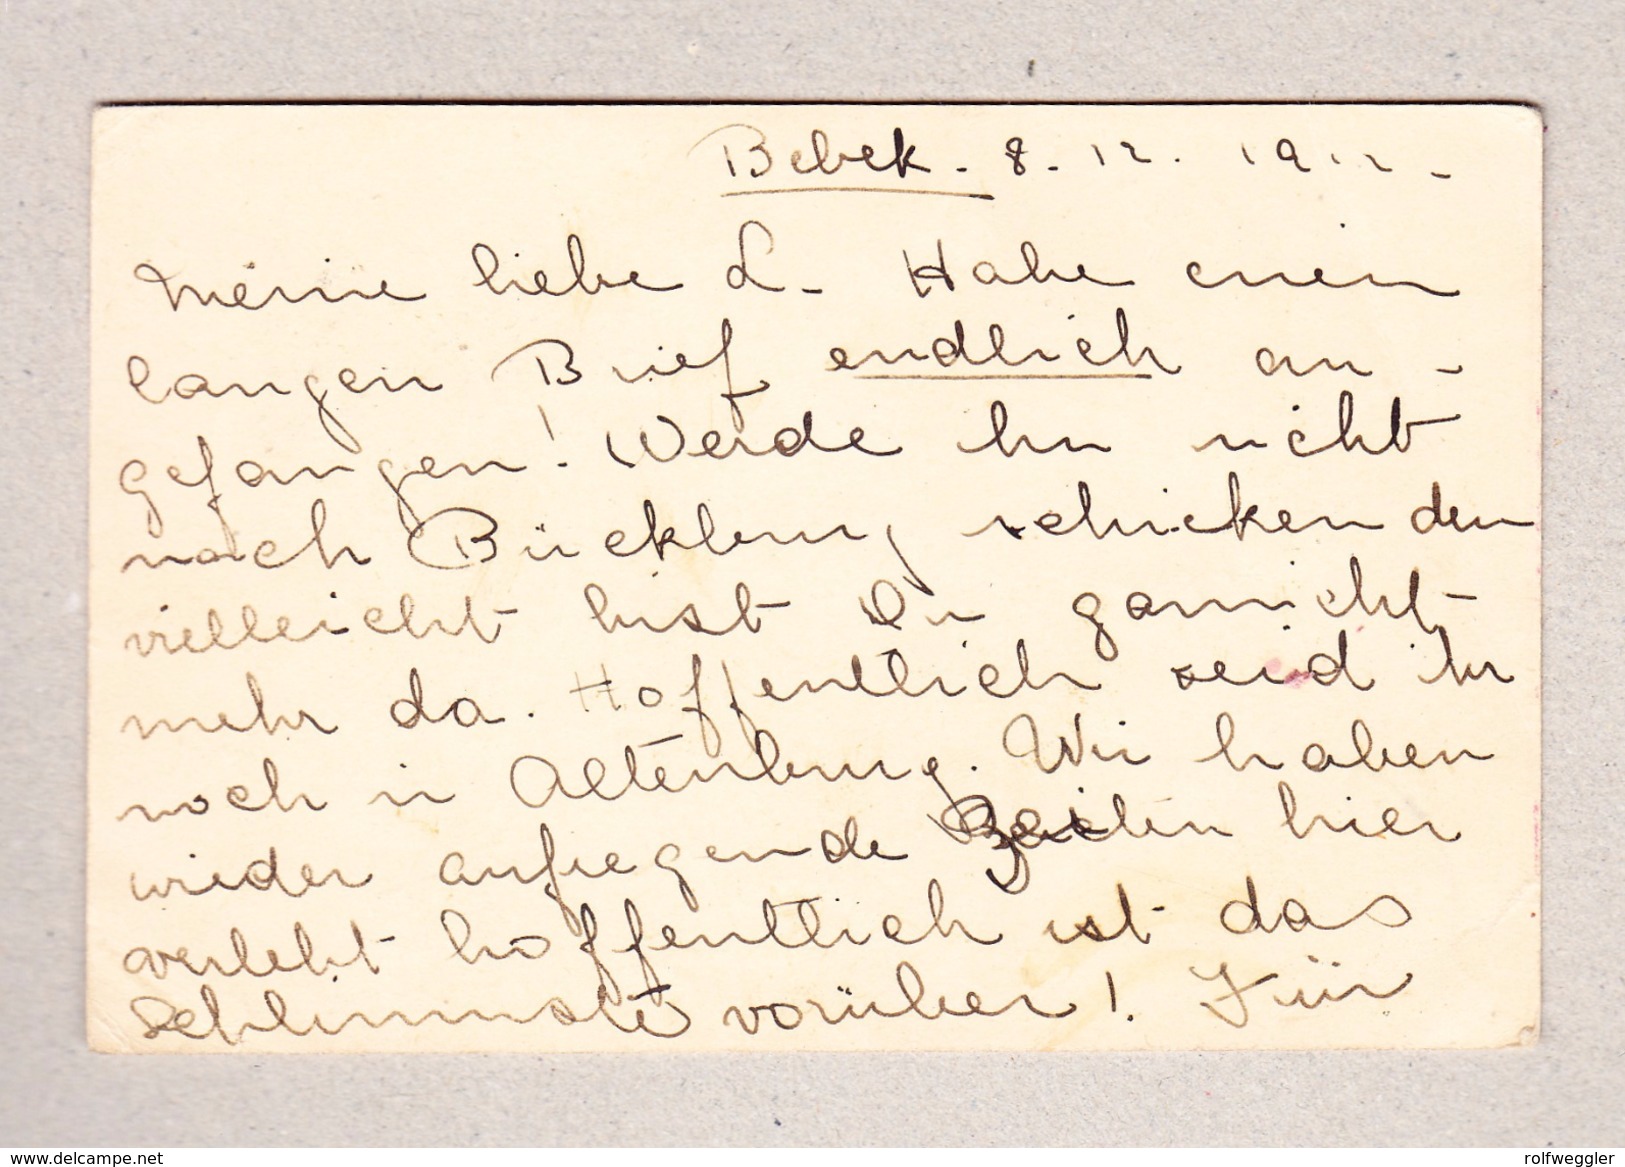 Bebek. 8. 12. 1912.
Meine liebe L. Habe einen
langen Brief endlich an-
gefangen! Werde ihn nicht
nach Bückburg schicken denn
vielleicht bist Du garnicht
mehr da. Hoffentlich seid ihr
noch in Altenburg. Wir haben
wieder aufregende Zeiten hier
verlebt hoffentlich ist das
Schlimmste vorüber! Für
www.delcampe.net
rolfweggler